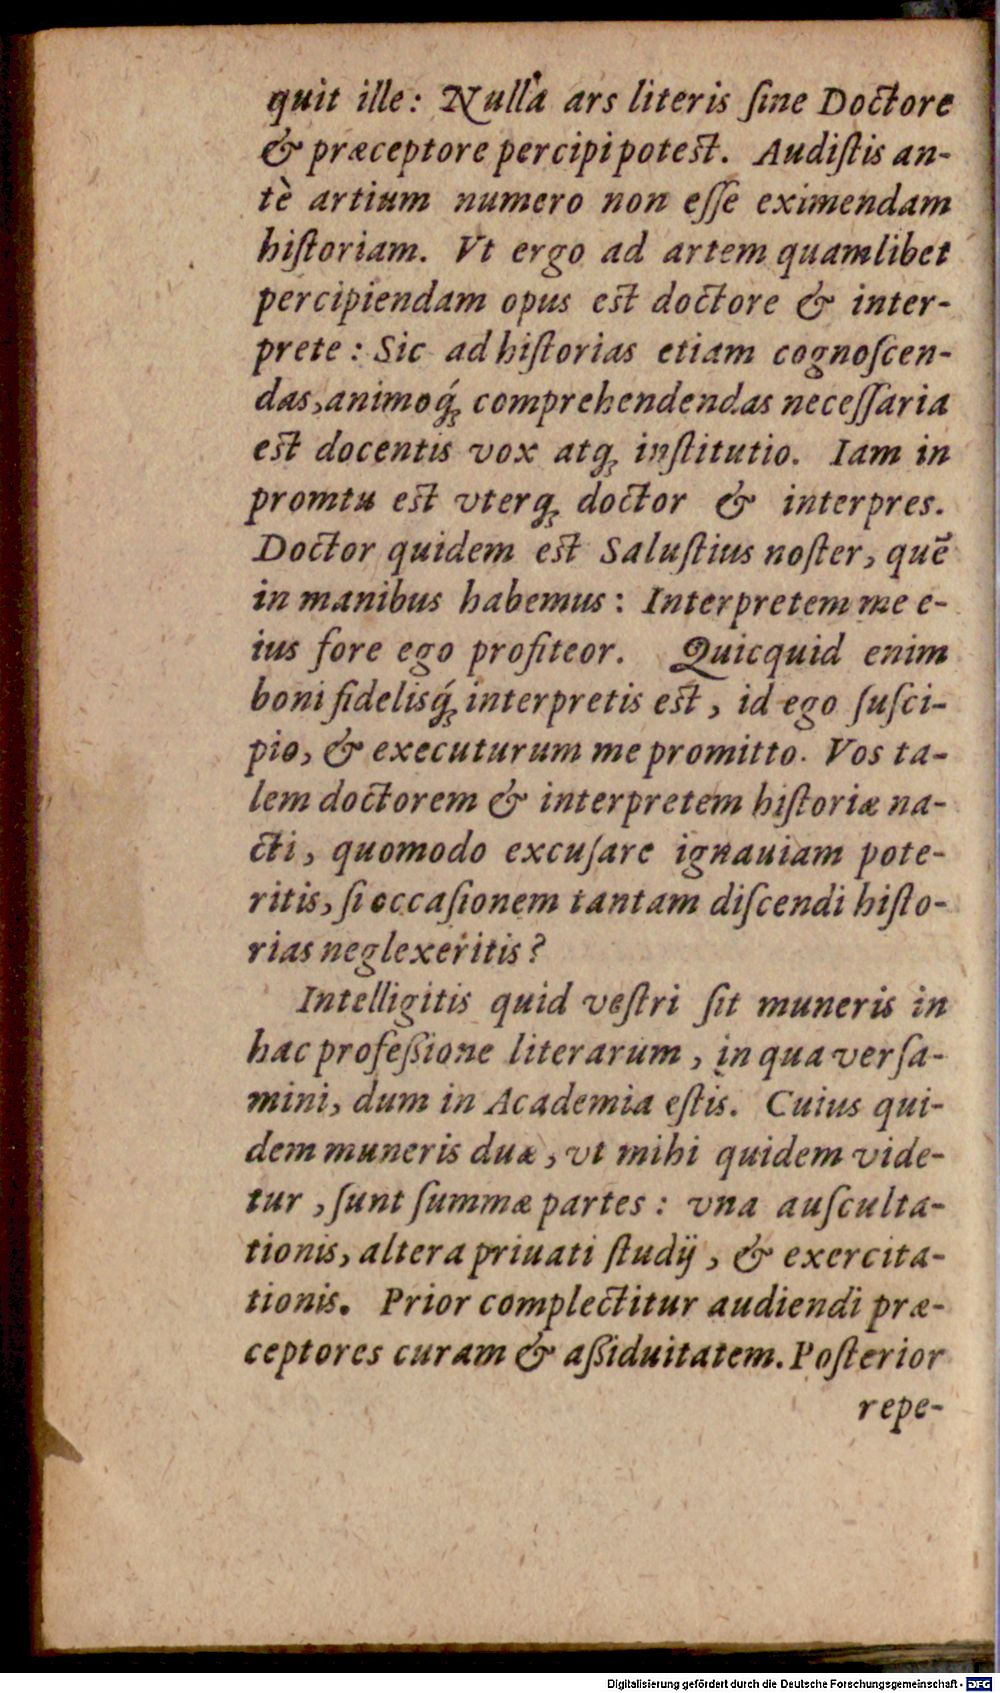 quit ille: Nulla ars literis ſine Doctore
& præceptore percipi poteſt. Audiſtis an-
tè artium numero non eſſe eximendam
hiſtoriam. Vt ergo ad artem quamlibet
percipiendam opus eſt doctore & inter-
prete: Sic ad hiſtorias etiam cognoſcen-
das, animoq́; comprehendendas neceſſaria
eſt docentis vox atq; inſtitutio. Iam in
promtu eſt vterq; doctor & interpres.
Doctor quidem eſt Saluſtius noſter, quē
in manibus habemus: Interpretem me e-
ius fore ego profiteor. Quicquid enim
boni fidelisq́; interpretis eſt, id ego ſuſci-
pio, & executurum me promitto. Vos ta-
lem doctorem & interpretem hiſtoriæ na-
cti, quomodo excuſare ignauiam pote-
ritis, ſi occaſionem tantam diſcendi hiſto-
rias neglexeritis?
Intelligitis quid veſtri ſit muneris in
hac profeßione literarum, in qua verſa-
mini, dum in Academia eſtis. Cuius qui-
dem muneris duæ, vt mihi quidem vide-
tur, ſunt ſummæ partes: vna auſculta-
tionis, altera priuati ſtudij, & exercita-
tionis. Prior complectitur audiendi præ-
ceptores curam & aßiduitatem. Poſterior
repe-
Digitalisierung gefördert durch die Deutsche Forschungsgemeinschaft - DFG